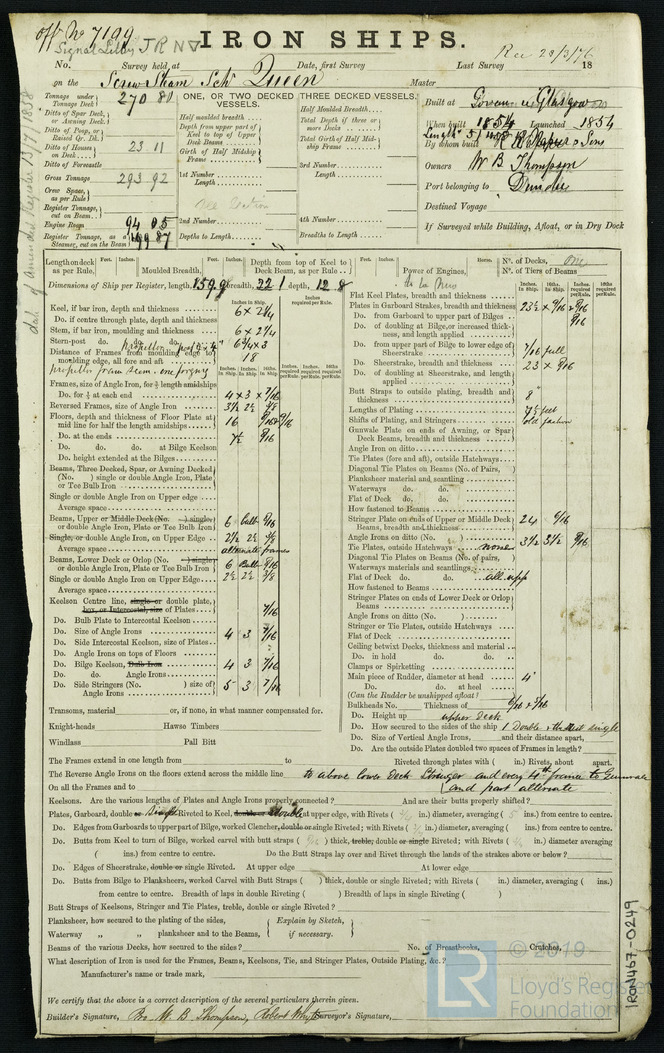 Off No 7199
Signal Letters J R N
IRON SHIPS.
Rec 28/3/76
No. Survey held at Date, first Survey Last Survey 18
on the Screw Steam Schr Queen Master
Tonnage under Tonnage Deck 270 80
Ditto of Spar Deck, or Awning Deck.
Ditto of Poop, or Raised Qr. Dk.
Ditto of Houses on Deck 23 11
Ditto of Forecastle
Gross Tonnage 293 92
Crew Space, as per Rule
Register Tonnage, cut on Beam
Engine Room 94 05
Register Tonnage, as a Steamer, cut on the Beam 199 87
ONE, OR TWO DECKED VESSELS.
Half moulded breadth
Depth from upper part of Keel to top of Upper Deck Beams
Girth of Half Midship Frame
1st Number
Length
2nd Number
Depths to Length
THREE DECKED VESSELS.
Half Moulded Breadth
Total Depth if three or more Decks
Total Girth of Half Midship Frame
3rd Number
Length
4th Number
Breadths to Length
Built at Govan Glasgow
When built 1854 Launched 1854
By whom built R Napier & Sons
Owners W B Thompson
Port belonging to Dundee
Destined Voyage
If Surveyed while Building, Afloat, or in Dry Dock
Length on deck as per Rule, Feet. Inches. Moulded Breadth, Feet. Inches. Depth from top of Keel to Deck Beam, as per Rule
Dimensions of Ship per Register, length, 159.9 breadth, 22 1 depth, 12 8
Power of Engines, Horse. No. of Decks, One
No. of Tiers of Beams
Keel, if bar iron, depth and thickness 6 x 2 1/4
Do. if centre through plate, depth and thickness
Stem, if bar iron, moulding and thickness 6 x 2 1/4
Stern-post do. do. do.
Distance of Frames from moulding edge to moulding edge, all fore and aft 18
Frames, size of Angle Iron, for 3/5 length amidships 4 x 3 x 7/16
Do. for 1/5 at each end
Reversed Frames, size of Angle Iron
Floors, depth and thickness of Floor Plate at mid line for half the length amidships 16
Do. at the ends
Do. do. do. at Bilge Keelson
Do. height extended at the Bilges
Beams, Three Decked, Spar, or Awning Decked (No. ) single or double Angle Iron, Plate or Tee Bulb Iron
Single or double Angle Iron on Upper edge
Average space
Beams, Upper or Middle Deck (No. ) single or double Angle Iron, Plate or Tee Bulb Iron 6 bulb 9/16
Single, or double Angle Iron, on Upper Edge
Average space alternate frames
Beams, Lower Deck or Orlop (No. ) single or double Angle Iron, Plate or Tee Bulb Iron 6 Bulb 9/16
Single or double Angle Iron on Upper Edge
Average space
Keelson Centre line, single or double plate, box, or Intercostal, size of Plates 7/16
Do. Bulb Plate to Intercostal Keelson
Do. Size of Angle Irons 4 3 7/16
Do. Side Intercostal Keelson, size of Plates
Do. Angle Irons on tops of Floors
Do. Bilge Keelson, Bulb Iron 4 3 7/16
Do. do. Angle Irons
Do. Side Stringers (No. ) size of Angle Irons 5 3 7/16
Flat Keel Plates, breadth and thickness
Plates in Garboard Strakes, breadth and thickness
Do. from Garboard to upper part of Bilges
Do. of doubling at Bilge, or increased thickness, and length applied
Do. from upper part of Bilge to lower edge of Sheerstrake 7/16 full
Do. Sheerstrake, breadth and thickness 23 x 9/16
Do. of doubling at Sheerstrake, and length applied
Butt Straps to outside plating, breadth and thickness 8"
Lengths of Plating 7 1/2 feet
Shifts of Plating, and Stringers old fashion
Gunwale Plate on ends of Awning, or Spar Deck Beams, breadth and thickness
Angle Iron on ditto
Tie Plates (fore and aft), outside Hatchways
Diagonal Tie Plates on Beams (No. of Pairs, )
Planksheer material and scantling
Waterways do. do.
Flat of Deck do. do.
How fastened to Beams
Stringer Plate on ends of Upper or Middle Deck Beams, breadth and thickness 24 9/16
Angle Irons on ditto (No. ) 3 1/2 3 1/2 9/16
Tie Plates, outside Hatchways none
Diagonal Tie Plates on Beams (No. of pairs, )
Waterways materials and scantlings
Flat of Deck do. do.
How fastened to Beams
Stringer Plates on ends of Lower Deck or Orlop Beams
Angle Irons on ditto (No. )
Stringer or Tie Plates, outside Hatchways
Flat of Deck
Ceiling betwixt Decks, thickness and material
Do. in hold do. do.
Clamps or Spirketting
Main piece of Rudder, diameter at head 4"
Do. do. at heel
(Can the Rudder be unshipped afloat?)
Bulkheads No. Thickness of
Do. Height up upper deck
Do. How secured to the sides of the ship
Do. Size of Vertical Angle Irons, and their distance apart,
Do. Are the outside Plates doubled two spaces of Frames in length?
Transoms, material or, if none, in what manner compensated for.
Knight-heads Hawse Timbers
Windlass Pall Bitt
The Frames extend in one length from to Riveted through plates with ( in.) Rivets, about apart.
The Reverse Angle Irons on the floors extend across the middle line to above lower Deck Stringer and every 4th frame to Gunwale
On all the Frames and to and part alternate
Keelsons. Are the various lengths of Plates and Angle Irons properly connected? And are their butts properly shifted?
Plates, Garboard, double or Single Riveted to Keel, double at upper edge, with Rivets ( in.) diameter, averaging ( 5 ins.) from centre to centre.
Do. Edges from Garboards to upper part of Bilge, worked Clencher, double or single Riveted; with Rivets ( in.) diameter, averaging ( ins.) from centre to centre.
Do. Butts from Keel to turn of Bilge, worked carvel with butt straps ( ) thick, treble, double or single Riveted; with Rivets ( in.) diameter averaging
( ins.) from centre to centre. Do the Butt Straps lay over and Rivet through the lands of the strakes above or below?
Do. Edges of Sheerstrake, double or single Riveted. At upper edge At lower edge
Do. Butts from Bilge to Planksheers, worked Carvel with Butt Straps ( ) thick, double or single Riveted; with Rivets ( in.) diameter, averaging ( ins.)
from centre to centre. Breadth of laps in double Riveting ( ) Breadth of laps in single Riveting ( )
Butt Straps of Keelsons, Stringer and Tie Plates, treble, double or single Riveted?
Planksheer, how secured to the plating of the sides, Explain by Sketch,
Waterway „ „ planksheer and to the Beams, if necessary.
Beams of the various Decks, how secured to the sides? No. of Breasthooks, Crutches,
What description of Iron is used for the Frames, Beams, Keelsons, Tie, and Stringer Plates, Outside Plating, &c.?
Manufacturer's name or trade mark,
We certify that the above is a correct description of the several particulars therein given.
Builder's Signature, Pro W. B. Thompson, Robert Whyte Surveyor's Signature,
© 2019
LR
Lloyd's Register
Foundation
IRON467-0249